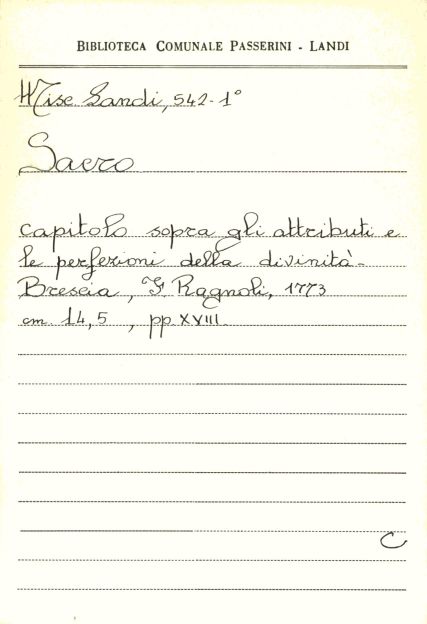 BIBLIOTECA COMUNALE PASSERINI - LANDI
Misc Landi, 542-1°
Sacro
Capitolo sopra gli attributi e
le perfezioni della divinità-
Brescia, F. Ragnoli, 1773
cm. 14,5 , pp. XVIII.
C